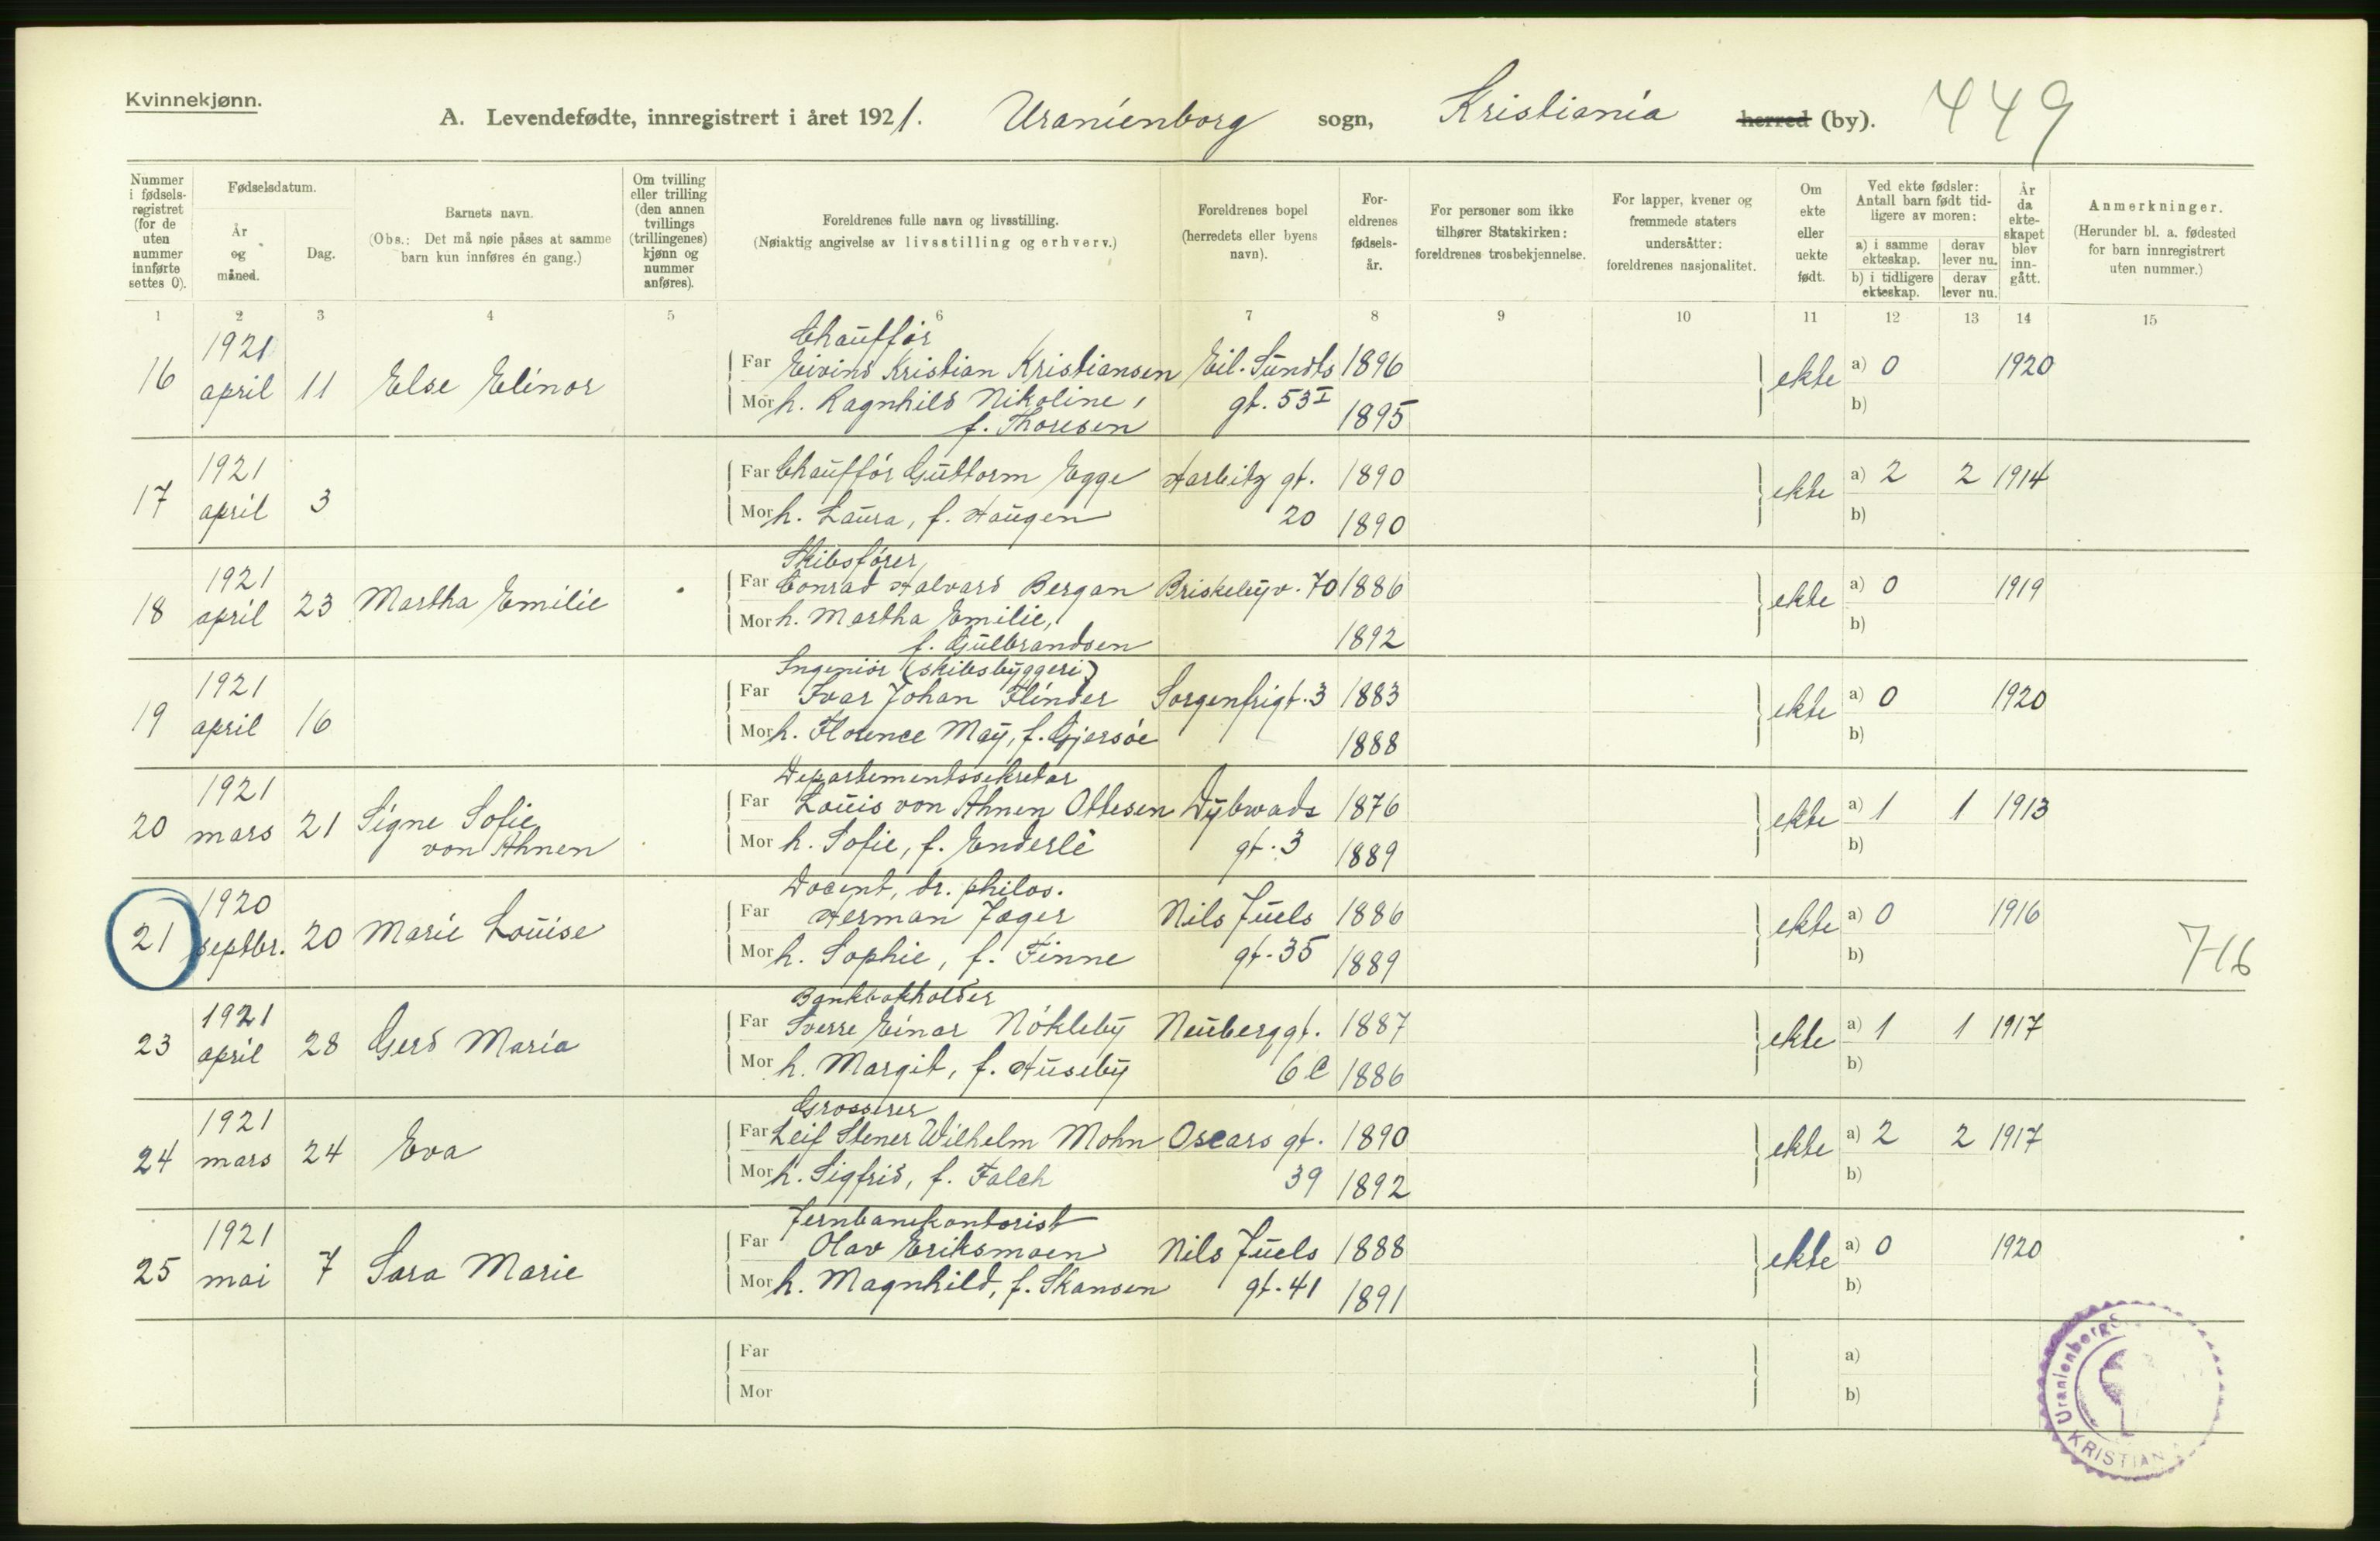 Kvinnekjønn.
A. Levendefødte, innregistrert i året 1921. Uranienborg sogn, Kristiania herred (by). 449
Nummer i fødsels-registret (for de uten nummer innførte settes 0).
Fødselsdatum.
År og måned.
Dag.
Barnets navn.
(Obs.: Det må nøie påses at samme barn kun innføres én gang.)
Om tvilling eller trilling (den annen tvillings (trillingenes) kjønn og nummer anføres).
Foreldrenes fulle navn og livsstilling.
(Nøiaktig angivelse av livsstilling og erhverv.)
Foreldrenes bopel (herredets eller byens navn).
For-eldrenes fødsels-år.
For personer som ikke tilhører Statskirken: foreldrenes trosbekjennelse.
For lapper, kvener og fremmede staters undersåtter: foreldrenes nasjonalitet.
Om ekte eller uekte født.
Ved ekte fødsler: Antall barn født tid-ligere av moren:
a) i samme ekteskap. derav lever nu.
b) i tidligere ekteskap. derav lever nu.
År da ekte-skapet blev inn-gått.
Anmerkninger.
(Herunder bl. a. fødested for barn innregistrert uten nummer.)
1 2 3 4 5 6 7 8 9 10 11 12 13 14 15
1921 Chauffør
16 april 11 Else Elinor Far Eivind Kristian Kristiansen Eil. Sundts 1896 ekte a) 0 1920
Mor h. Ragnhild Nikoline, gt. 53 I 1895 b)
f. Thoresen
1921 Far Chauffør Guttorm Egge Harbitz gt. 1890 a) 2 2 1914
17 april 3 Mor h. Laura, f. Haugen 20 1890 ekte b)
1921 Skibsfører
18 april 23 Martha Emilie Far Conrad Halvard Bergan Briskebyv. 70 1886 ekte a) 0 1919
Mor h. Martha Emilie, b)
f. Gulbrandsen 1892
Ingeniør (skibsbyggeri)
1921 Far Ivar Johan Flinder Sorgenfrigt. 3 1883 a) 0 1920
19 april 16 Mor h. Florence May, f. Gjersøe 1888 ekte b)
1921 Departementssekretær
20 mars 21 Signe Sofie Far Louis von Ahnen Ottesen Dybwads 1876 ekte a) 1 1 1913
von Ahnen Mor h. Sofie, f. Enderle gt. 3 1889 b)
1920 Docent, dr. philos.
21 septbr. 20 Marie Louise Far Herman Jæger Nils Juels 1886 ekte a) 0 1916
Mor h. Sophie, f. Finne gt. 35 1889 b) 716
1921 Bankbokholder
23 april 28 Gerd Maria Far Sverre Einar Nökleby Neuberggt. 1887 ekte a) 1 1 1917
Mor h. Margit, f. Huseby 6 C 1886 b)
1921 Grosserer
24 mars 24 Eva Far Leif Stener Wilhelm Mohn Oscars gt. 1890 ekte a) 2 2 1917
Mor h. Sigfrid, f. Falch 39 1892 b)
1921 Jernbanekontorist
25 mai 7 Sara Marie Far Olav Eriksmoen Nils Juels 1888 ekte a) 0 1920
Mor h. Magnhild, f. Skansen gt. 41 1891 b)
Far a)
Mor b)
Uranienborgs
KRISTIAN